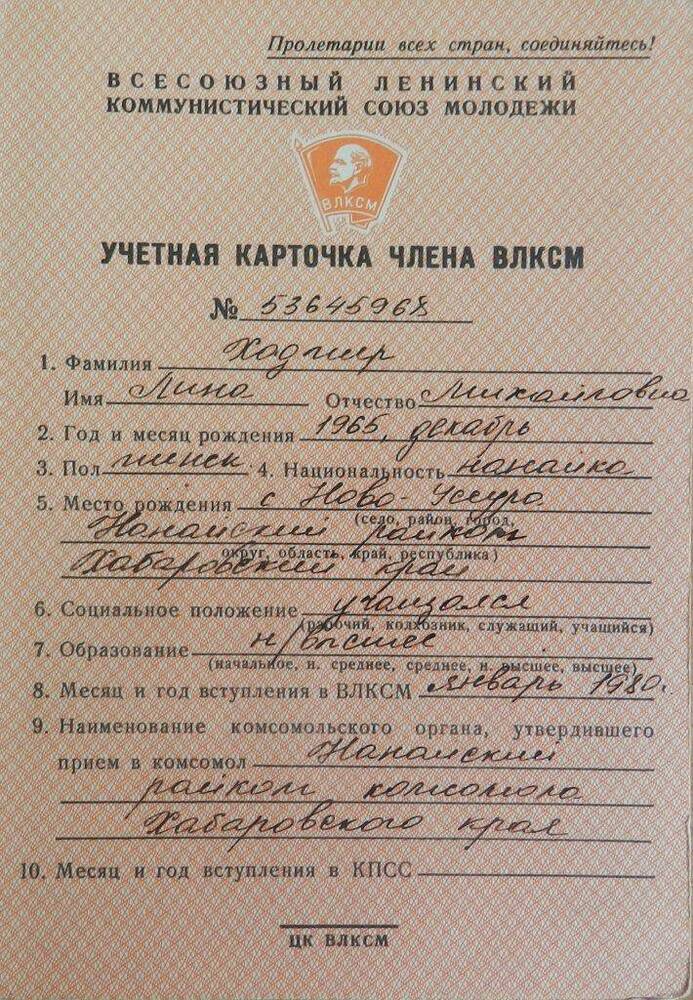 Пролетарии всех стран, соединяйтесь!
ВСЕСОЮЗНЫЙ ЛЕНИНСКИЙ
КОММУНИСТИЧЕСКИЙ СОЮЗ МОЛОДЕЖИ
ВЛКСМ
УЧЕТНАЯ КАРТОЧКА ЧЛЕНА ВЛКСМ
№ 53645968
1. Фамилия Ходжер
Имя Лина Отчество Михайловна
2. Год и месяц рождения 1965, декабрь
3. Пол женск 4. Национальность нанайка
5. Место рождения с Ново-Уссура
(село, район, город,
Нанайский райком
округ, область, край, республика)
Хабаровский край
6. Социальное положение учащаяся
(рабочий, колхозник, служащий, учащийся)
7. Образование н/высшее
(начальное, н. среднее, среднее, н. высшее, высшее)
8. Месяц и год вступления в ВЛКСМ январь 1980г.
9. Наименование комсомольского органа, утвердившего
прием в комсомол Нанайский
райком комсомола
Хабаровского края
10. Месяц и год вступления в КПСС
ЦК ВЛКСМ